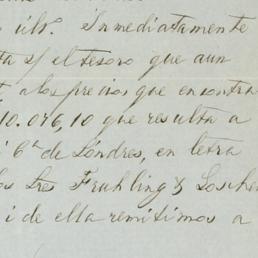 ulto. Inmediatamente
ta s/ el tesoro que aun
a los precios que encontra
10.076,10 que resulta a
i 6a de Lóndres, en letra
los Sres Fruhling & Goschen
i de ella remitimos a